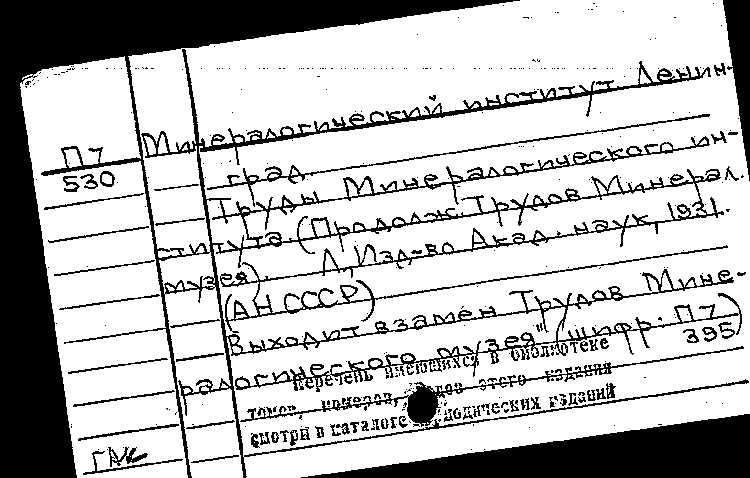 П7
530
Минералогический институт Ленин-
град.
Труды Минералогического ин-
ститута. (Продолж. Трудов Минерал.
музея). Л., Изд-во Акад. наук, 1931.
(АН СССР)
Выходит взамен Трудов Мине-
ралогического музея" (шифр: П7
395)
Перечень имеющихся в библиотеке
томов, номеров, годов этого издания
смотри в каталоге периодических изданий
ГАК